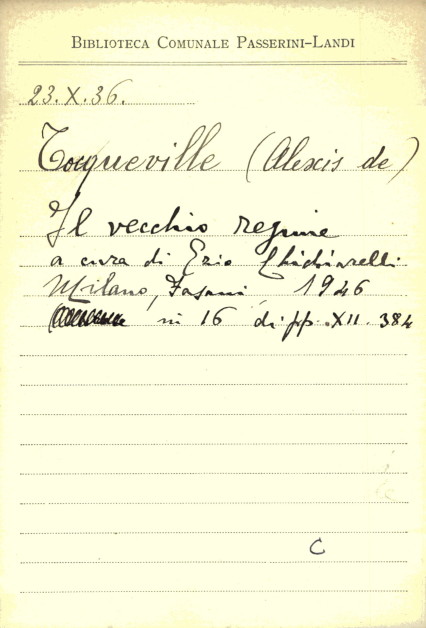 BIBLIOTECA COMUNALE PASSERINI-LANDI
23.X.36.
Tocqueville (Alexis de)
Il vecchio regime
a cura di Ezio Chichiarelli
Milano, Fasani, 1946
in 16 di pp. XII. 384
C